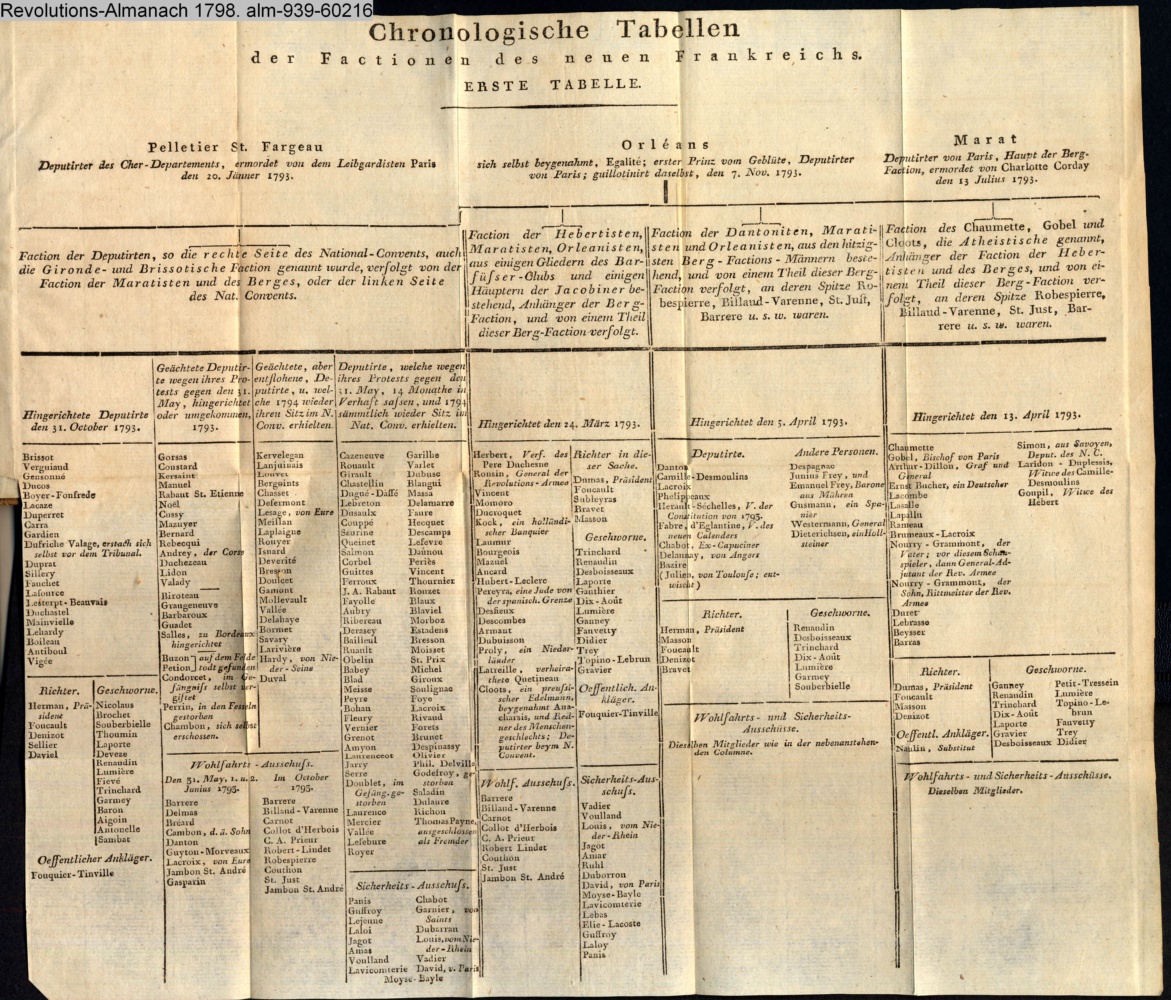 Revolutions-Almanach 1798. alm-939-60216
Chronologische Tabellen
der Factionen des neuen Frankreichs.
ERSTE TABELLE.
Pelletier St. Fargeau
Deputirter des Cher-Departements, ermordet von dem Leibgardisten Paris
den 20. Jänner 1793.
Orléans
sich selbst beygenahmt, Egalité; erster Prinz vom Geblüte, Deputirter
von Paris; guillotinirt daselbst, den 7. Nov. 1793.
Marat
Deputirter von Paris, Haupt der Berg-
Faction, ermordet von Charlotte Corday
den 13 Julius 1793.
Faction der Deputirten, so die rechte Seite des National-Convents, auch
die Gironde- und Brissotische Faction genannt wurde, verfolgt von der
Faction der Maratisten und des Berges, oder der linken Seite
des Nat. Convents.
Faction der Hebertisten,
Maratisten, Orleanisten,
aus einigen Gliedern des Bar-
füſser-Clubs und einigen
Häuptern der Jacobiner be-
stehend, Anhänger der Berg-
Faction, und von einem Theil
dieser Berg-Faction verfolgt.
Faction der Dantoniten, Marati-
sten und Orleanisten, aus den hitzig-
sten Berg-Factions-Männern beste-
hend, und von einem Theil dieser Berg-
Faction verfolgt, an deren Spitze Ro-
bespierre, Billaud-Varenne, St. Just,
Barrere u. s. w. waren.
Faction des Chaumette, Gobel und
Cloots, die Atheistische genannt,
Anhänger der Faction der Heber-
tisten und des Berges, und von ei-
nem Theil dieser Berg-Faction ver-
folgt, an deren Spitze Robespierre,
Billaud-Varenne, St. Just, Bar-
rere u. s. w. waren.
Hingerichtete Deputirte
den 31. October 1793.
Brissot
Vergniaud
Gensonné
Ducos
Boyer-Fonfrede
Lacaze
Duperret
Carra
Gardien
Dufriche Valage, erstach sich
selbst vor dem Tribunal.
Duprat
Sillery
Fauchet
Lasource
Lesterpt-Beauvais
Duchastel
Mainvielle
Lehardy
Boileau
Antiboul
Vigée
Richter.
Herman, Prä-
sident
Foucault
Denizot
Sellier
Daviel
Geschworne.
Nicolaus
Brochet
Souberbielle
Thoumin
Laporte
Deveze
Renaudin
Lumière
Fievé
Trinchard
Garmey
Baron
Aigoin
Antonelle
Sambat
Oeffentlicher Ankläger.
Fouquier-Tinville
Geächtete Deputir-
te wegen ihres Pro-
tests gegen den 31.
May, hingerichtet
oder umgekommen,
1793.
Gorsas
Coustard
Kersaint
Manuel
Rabaut St. Etienne
Noël
Cussy
Mazuyer
Bernard
Rebecqui
Andrey, der Corse
Duchezeau
Lidon
Valady
Biroteau
Grangeneuve
Barbaroux
Guadet
Salles, zu Bordeaux
hingerichtet
Buzon auf dem Felde
Petion todt gefunden
Condorcet, im Ge-
fängniſs selbst ver-
giftet
Perrin, in den Fesseln
gestorben
Chambon, sich selbst
erschossen.
Geächtete, aber
entflohene, De-
putirte, u. wel-
che 1794 wieder
ihren Sitz im N.
Conv. erhielten.
Kervelegan
Lanjuinais
Louvet
Bergoints
Chasset
Defermont
Lesage, von Eure
Meillan
Laplaigne
Rouyer
Isnard
Deverité
Bresson
Doulcet
Gamont
Mollevault
Vallée
Delahaye
Bormet
Savary
Larivière
Hardy, von Nie-
der-Seine
Duval
Wohlfahrts-Ausschuſs.
Den 31. May, 1. u. 2.
Junius 1793.
Barrere
Delmas
Bréard
Cambon, d. ä. Sohn
Danton
Guyton-Morveaux
Lacroix, von Eure
Jambon St. André
Gasparin
Im October
1793.
Barrere
Billaud-Varenne
Carnot
Collot d'Herbois
C. A. Prieur
Robert-Lindet
Robespierre
Couthon
St. Just
Jambon St. André
Deputirte, welche wegen
ihres Protests gegen den
31. May, 14 Monathe in
Verhaft saſsen, und 1794
sämmtlich wieder Sitz im
Nat. Conv. erhielten.
Cazeneuve
Rouault
Girault
Chastellin
Dugué-Daſſé
Lebreton
Dusaulx
Couppé
Saurine
Queinet
Salmon
Corbel
Guittes
Ferroux
J. A. Rabant
Fayolle
Aubry
Ribereau
Derazey
Bailleul
Ruault
Obelin
Babey
Blad
Meisse
Peyre
Bohan
Fleury
Vernier
Grenot
Amyon
Laurenceot
Jarry
Serre
Doublet, im
Gefäng. ge-
storben
Laurence
Mercier
Vallée
Lefebure
Royer
Garilhe
Varlet
Dubusc
Blangui
Massa
Delamarre
Faure
Hecquet
Descamps
Lefevre
Daunou
Periès
Vincent
Thournier
Rouzet
Blaux
Blaviel
Morboz
Estadens
Bresson
Moisset
St. Prix
Michel
Giroux
Soulignac
Foye
Lacroix
Rivaud
Forets
Brunet
Despinassy
Olivier
Phil. Delville
Godefroy, ge-
storben
Saladin
Dulaure
Richon
Thomas Payne,
ausgeschlossen
als Fremder
Sicherheits-Ausschuſs.
Panis
Guffroy
Lejeune
Laloi
Jagot
Amas
Voulland
Lavicomterie
Moyse-Bayle
Chabot
Garnier, von
Saints
Dubarran
Louis, vom Nie-
der-Rhein
Vadier
David, v. Paris
Hingerichtet den 24. März 1793.
Herbert, Verf. des
Pere Duchesne
Ronsin, General der
Revolutions-Armee
Vincent
Momoro
Ducroquet
Kock, ein holländi-
scher Banquier
Laumur
Bourgeois
Mazuel
Ancard
Hubert-Leclere
Pereyra, eine Jude von
der spanisch. Grenze
Desfieux
Descombes
Armant
Dubuisson
Proly, ein Nieder-
länder
Latreille, verheira-
thete Quetineau
Cloots, ein preuſsi-
scher Edelmann,
beygenahmt Ana-
charsis, und Red-
ner des Menschen-
geschlechts; De-
putirter beym N.
Convent.
Richter in die-
ser Sache.
Dumas, Präsident
Foucault
Subleyras
Bravet
Masson
Geschworne.
Trinchard
Renaudin
Desboisseaux
Laporte
Gauthier
Dix-Août
Lumière
Ganney
Fauvetty
Didier
Trey
Topino-Lebrun
Gravier
Oeffentlich. An-
kläger.
Fouquier-Tinville
Wohlf. Ausschuſs.
Barrere
Billaud-Varenne
Carnot
Collot d'Herbois
C. A. Prieur
Robert Lindet
Couthon
St. Just
Jambon St. André
Sicherheits-Aus-
schuſs.
Vadier
Voulland
Louis, vom Nie-
der-Rhein
Jagot
Amar
Ruhl
Duborron
David, von Paris
Moyse-Bayle
Lavicomterie
Lebas
Elie-Lacoste
Guffroy
Laloy
Panis
Hingerichtet den 5. April 1793.
Deputirte.
Danton
Camille-Desmoulins
Lacroix
Phelippeaux
Herault-Séchelles, V. der
Constitution von 1793.
Fabre, d'Eglantine, V. des
neuen Calenders
Chabot, Ex-Capuciner
Delaunay, von Angers
Bazire
(Julien, von Toulouse; ent-
wischt).
Andere Personen.
Despagnac
Junius Frey, und
Emanuel Frey, Barone
aus Mähren
Gusmann, ein Spa-
nier
Westermann, General
Dieterichsen, ein Holl-
steiner
Richter.
Herman, Präsident
Masson
Foucault
Denizot
Bravet
Geschworne.
Renaudin
Desboisseaux
Trinchard
Dix-Août
Lumière
Garmey
Souberbielle
Wohlfahrts- und Sicherheits-
Ausschüsse.
Dieselben Mitglieder wie in der nebenanstehen-
den Columne.
Hingerichtet den 13. April 1793.
Chaumette
Gobel, Bischof von Paris
Arthur-Dillon, Graf und
General
Ernst Bucher, ein Deutscher
Lacombe
Lasalle
Lapallu
Rameau
Brumeaux-Lacroix
Nourry-Grammont, der
Vater; vor diesem Schau-
spieler, dann General-Ad-
jutant der Rev. Armee
Nourry-Grammont, der
Sohn, Rittmeister der Rev.
Armee
Duret
Lebrasse
Beysser
Barras
Simon, aus Savoyen,
Deput. des N. C.
Laridon-Duplessis,
Witwe des Camille-
Desmoulins
Goupil, Witwe des
Hébert
Richter.
Dumas, Präsident
Foucault
Masson
Denizot
Oeffentl. Ankläger.
Naulin, Substitut
Geschworne.
Ganney
Renaudin
Trinchard
Dix-Août
Laporte
Gravier
Desboisseaux
Petit-Tressein
Lumière
Topino-Le-
brun
Fauvetty
Trey
Didier
Wohlfahrts- und Sicherheits-Ausschüsse.
Dieselben Mitglieder.